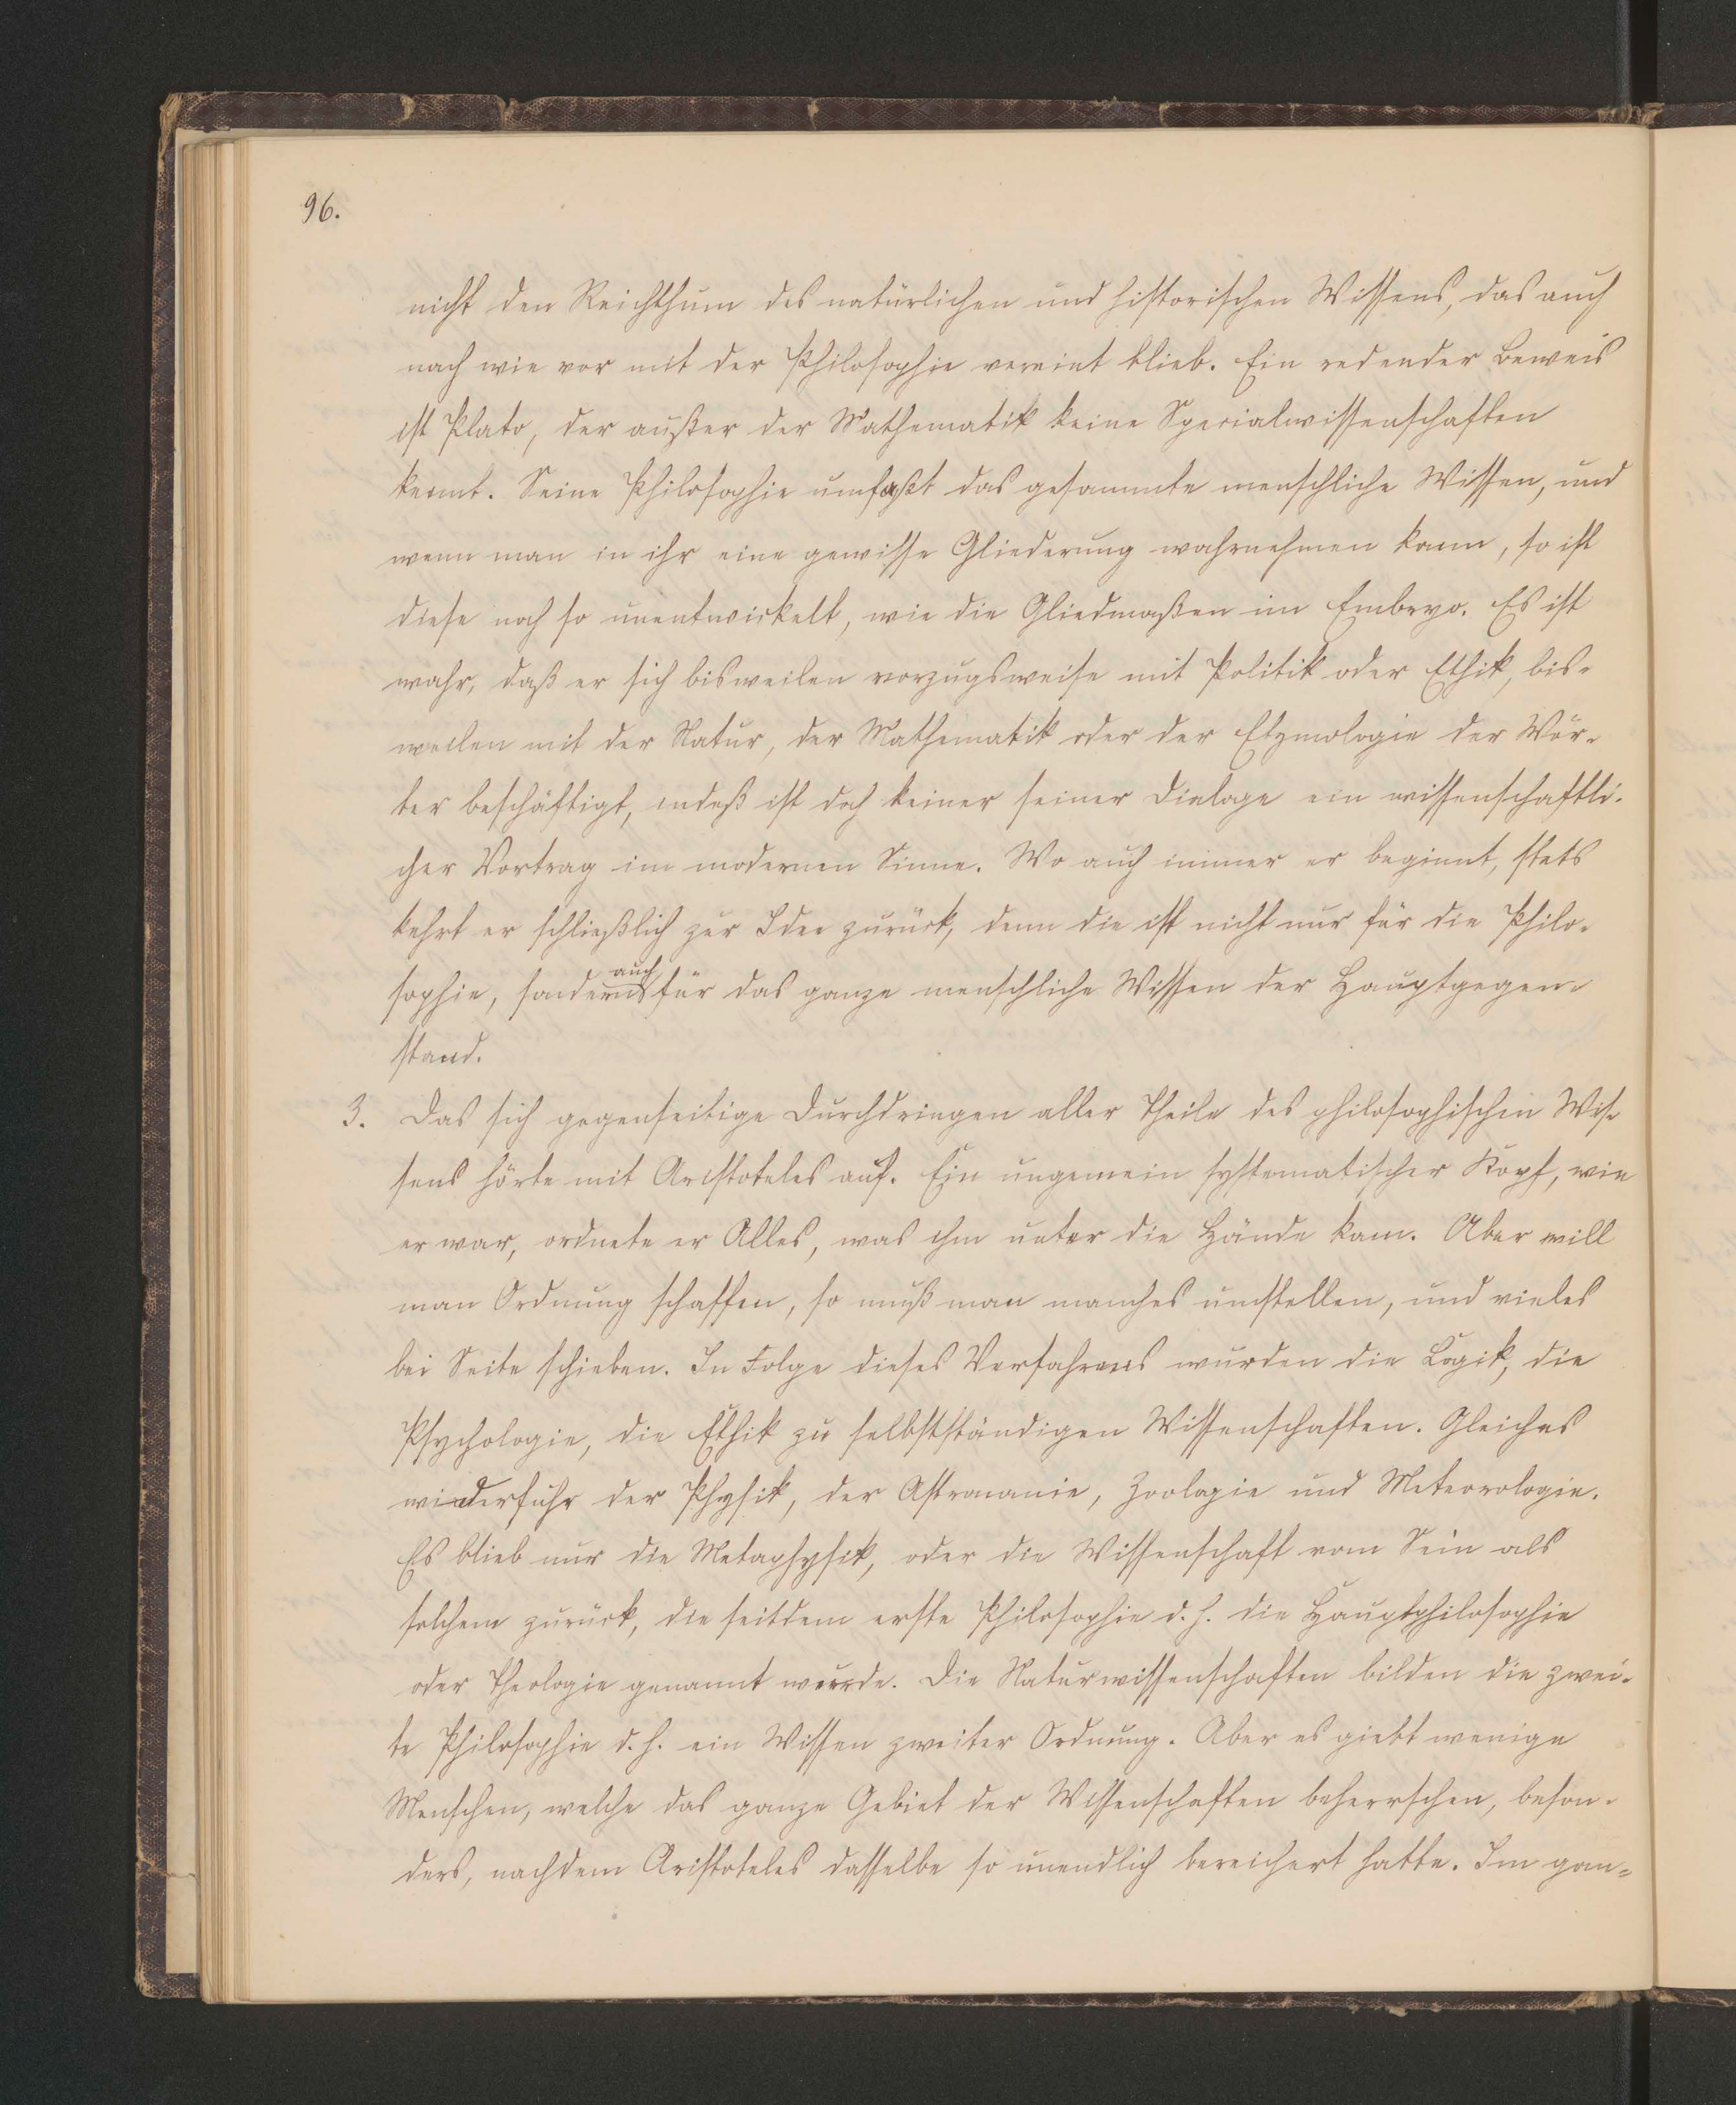 96.
nicht den Reichthum des natürlichen und historischen Wissens, das auch
nach wie vor mit der Philosophie vereint blieb. Ein redender Beweis
ist Plato, der außer der Mathematik keine Specialwissenschaften
kennt. Seine Philosophie umfaßt das gesammte menschliche Wissen, und
wenn man in ihr eine gewisse Gliederung wahrnehmen kann, so ist
diese noch so unentwickelt, wie die Gliedmaßen im Embryo. Es ist
wahr, daß er sich bisweilen vorzugsweise mit Politik oder Ethik, bis-
weilen mit der Natur, der Mathematik oder der Etymologie der Wör-
ter beschäftigt, indeß ist doch keiner seiner Dialoge ein wissenschaftli-
cher Vortrag im modernen Sinne. Wo auch immer er beginnt, stets
kehrt er schließlich zur Idee zurück, denn die ist nicht nur für die Philo-
sophie, sondern auch für das ganze menschliche Wissen der Hauptgegen-
stand.
3. Das sich gegenseitige Durchdringen aller Theile des philosophischen Wis-
sens hörte mit Aristoteles auf. Ein ungemein systematischer Kopf, wie
er war, ordnete er Alles, was ihm unter die Hände kam. Aber will
man Ordnung schaffen, so muß man manches umstellen, und vieles
bei Seite schieben. In Folge dieses Verfahrens wurden die Logik, die
Psychologie, die Ethik zu selbstständigen Wissenschaften. Gleiches
wiederfuhr der Physik, der Astronomie, Zoologie und Meteorologie.
Es blieb nur die Metaphysik, oder die Wissenschaft vom Sein als
solchem zurück, die seitdem erste Philosophie d. h. die Hauptphilosophie
oder Theologie genannt wurde. Die Naturwissenschaften bilden die zwei-
te Philosophie d. h. ein Wissen zweiter Ordnung. Aber es giebt wenige
Menschen, welche das ganze Gebiet der Wissenschaften beherrschen, beson-
ders, nachdem Aristoteles dasselbe so unendlich bereichert hatte. Im gan-